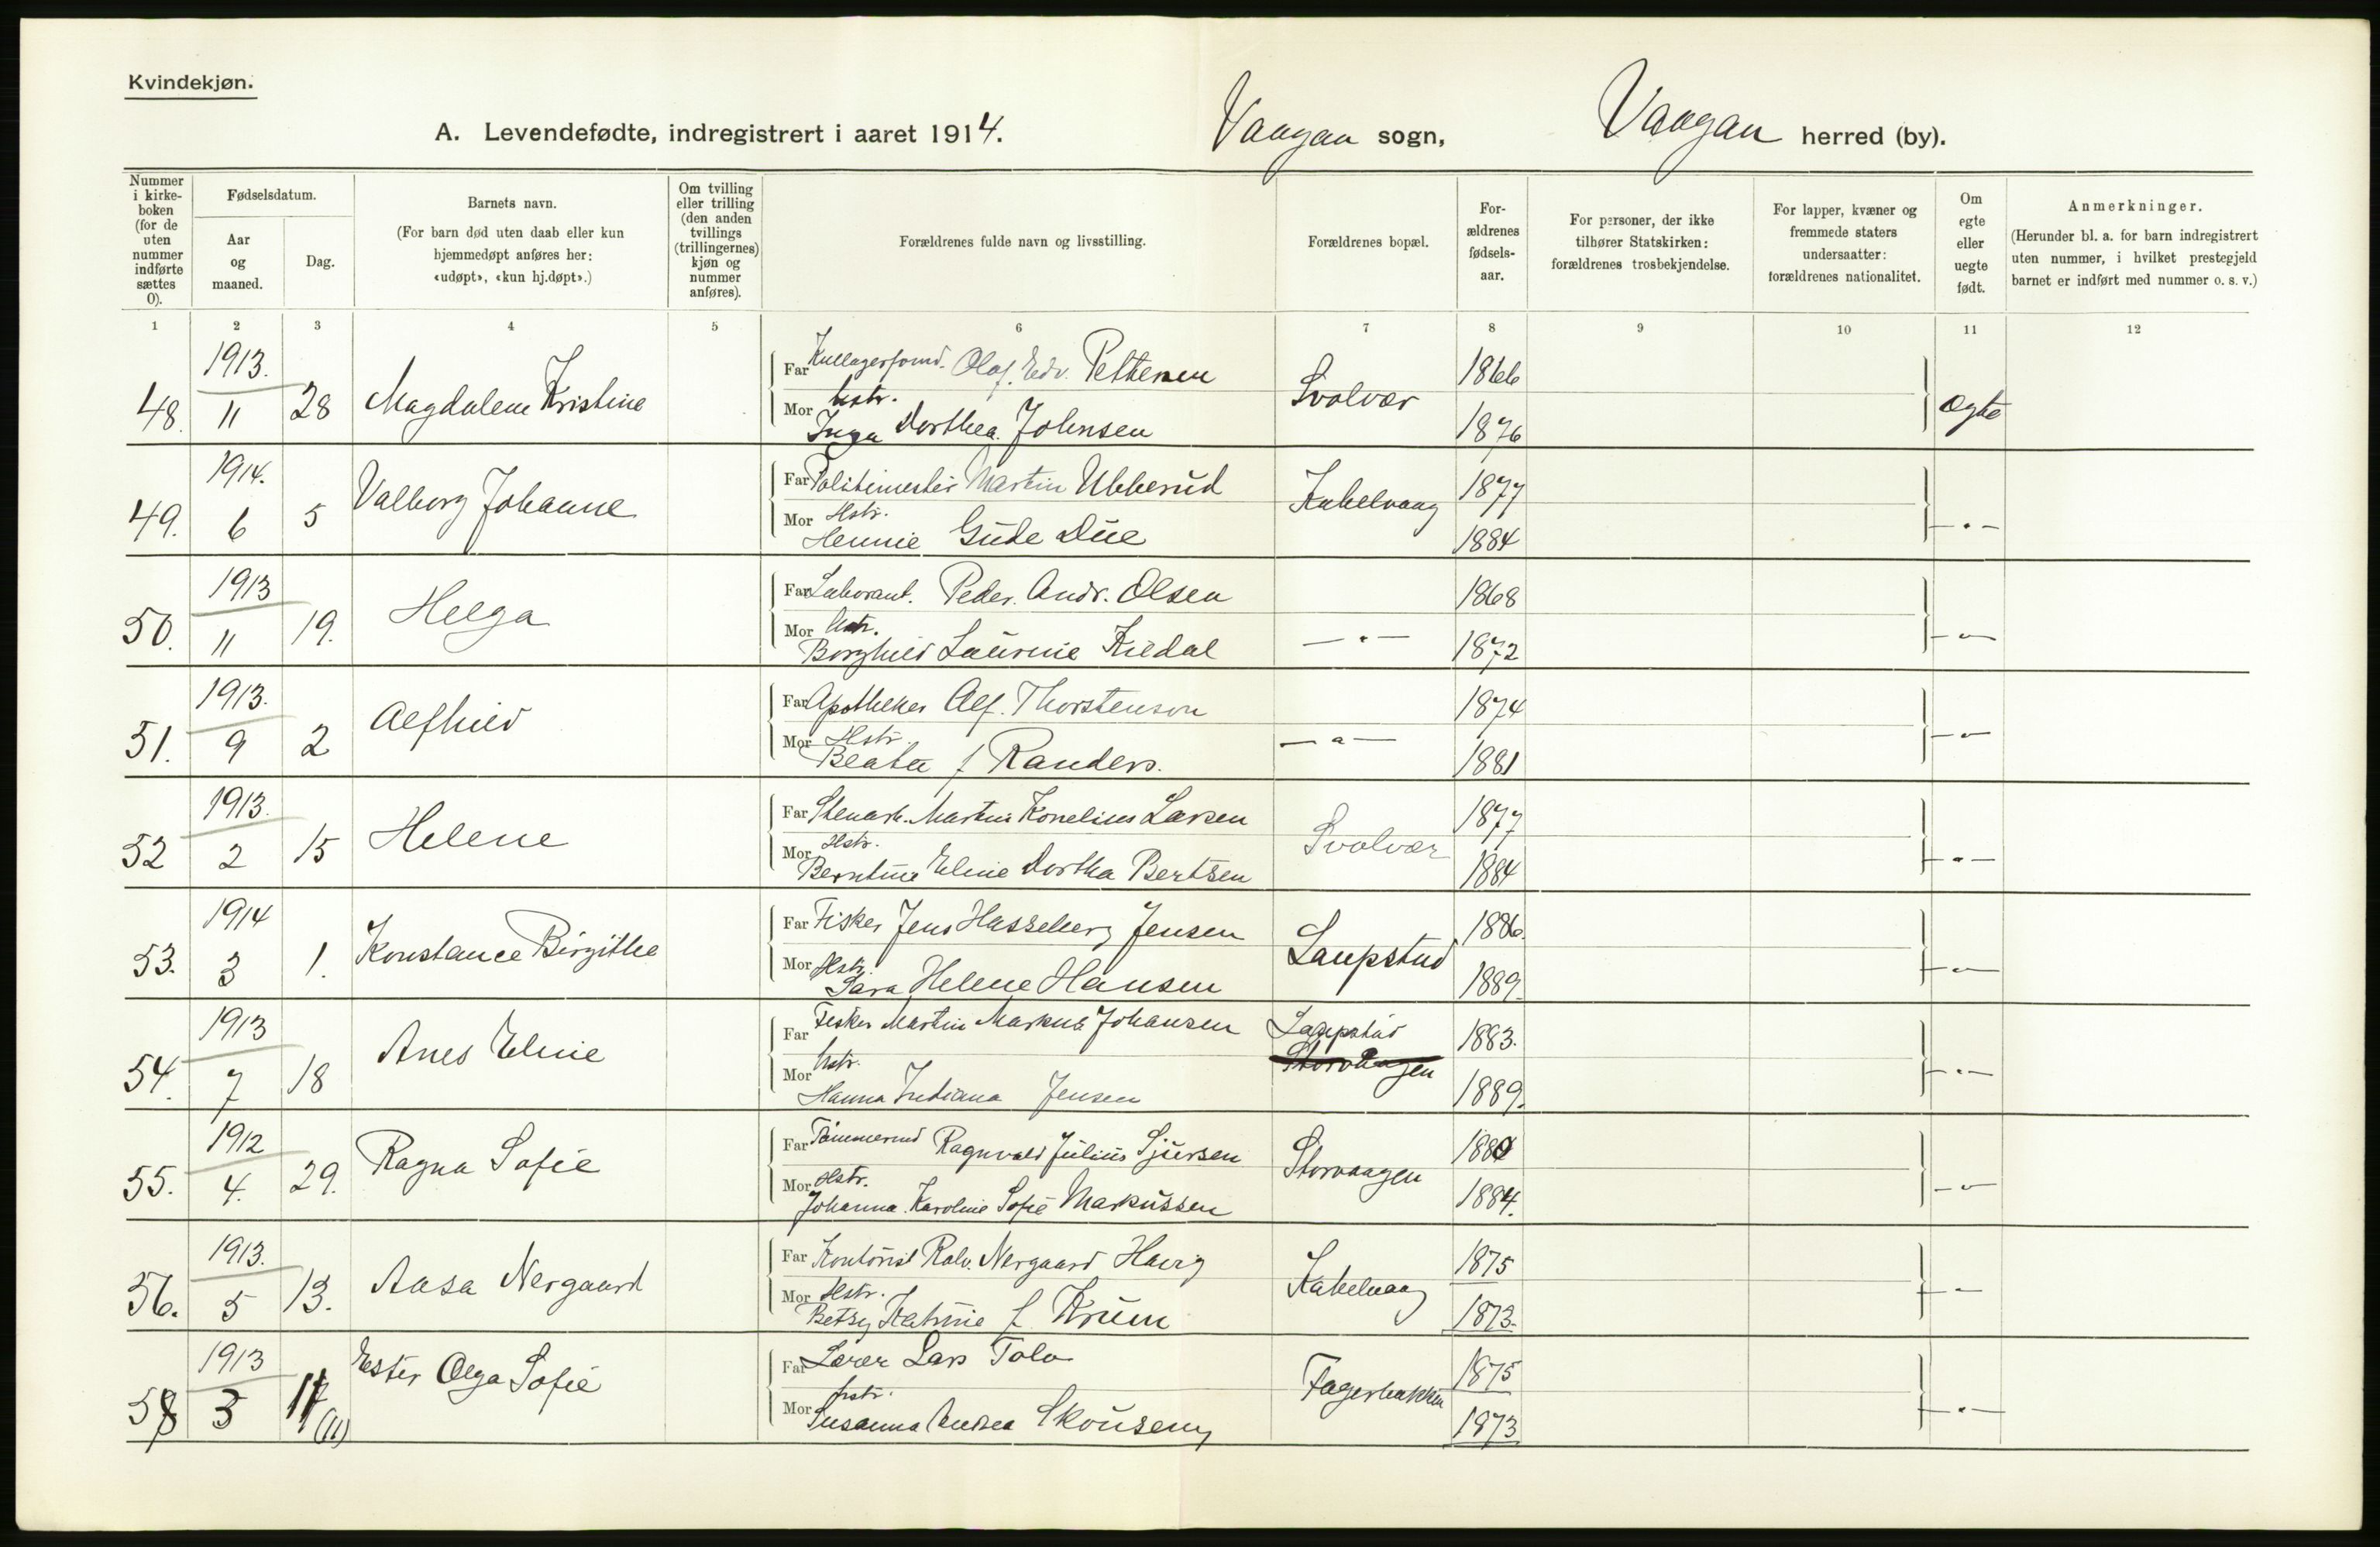 Kvindekjøn.
A. Levendefødte, indregistrert i aaret 1914. Vaagan sogn, Vaagan herred (by).
Nummer i kirkeboken (for de uten nummer indførte sættes 0). Fødselsdatum. Aar og maaned. Dag. Barnets navn. (For barn død uten daab eller kun hjemmedøpt anføres her: «udøpt», «kun hj.døpt».) Om tvilling eller trilling (den anden tvillings (trillingernes) kjøn og nummer anføres). Forældrenes fulde navn og livsstilling. Forældrenes bopæl. Forældrenes fødselsaar. For personer, der ikke tilhører Statskirken: forældrenes trosbekjendelse. For lapper, kvæner og fremmede staters undersaatter: forældrenes nationalitet. Om egte eller uegte født. Anmerkninger. (Herunder bl. a. for barn indregistrert uten nummer, i hvilket prestegjeld barnet er indført med nummer o. s. v.)
1 2 3 4 5 6 7 8 9 10 11 12
48. 1913. 11 28 Magdalene Kristine Far Kullagerformd. Olaf. Edv. Pettersen Svolvær 1866 ægte
Mor Hstr. Inga Dorthea. Johnsen 1876
49. 1914. 6 5 Valborg Johanne Far Politimester Martin Ubberud Kabelvaag 1877 — " —
Mor Hstr. Hennie Gude Due 1884
50. 1913 11 19. Helga Far Laborant. Peder. Andr. Olsen — " — 1868 — " —
Mor Hstr. Borghild Laurine Kildal 1872
51. 1913. 9 2 Alfhild Far Apotheker Alf. Thorstenson — " — 1874 — " —
Mor Hstr. Beate f Randers. 1881
52 1913. 2 15 Helene Far Stenarb. Martin Kornelius Larsen Svolvær 1877 — " —
Mor Hstr. Berntine Eline Dorthea Bertsen 1884
53. 1914 3 1. Konstance Birgithe Far Fisker Jens Hasselberg Jensen Laupstad 1886. — " —
Mor Hstr. Sara Helene Hansen 1889.
54. 1913 7 18 Anes Eline Far Fisker Martin Markus Johansen Laupstad Storvaagen 1883. — " —
Mor Hstr. Hanna Indiana Jensen 1889.
55. 1912 4. 29. Ragna Sofie Far Tømmermd Ragnvald Julius Sjursen Storvaagen 1880 — " —
Mor Hstr. Johanna. Karoline Sofie Markussen 1884.
56. 1913. 5 13. Aasa Nergaard Far Kontorist Ralv. Nergaard Havig Kabelvaag 1875 — " —
Mor Hstr. Betzy Katrine f. Krum 1873.
58 1913 3 (11) Ester Olga Sofie Far Lærer Lars Tolo Fagerbakken 1875 — " —
Mor Hstr. Susanna Andrea 1873